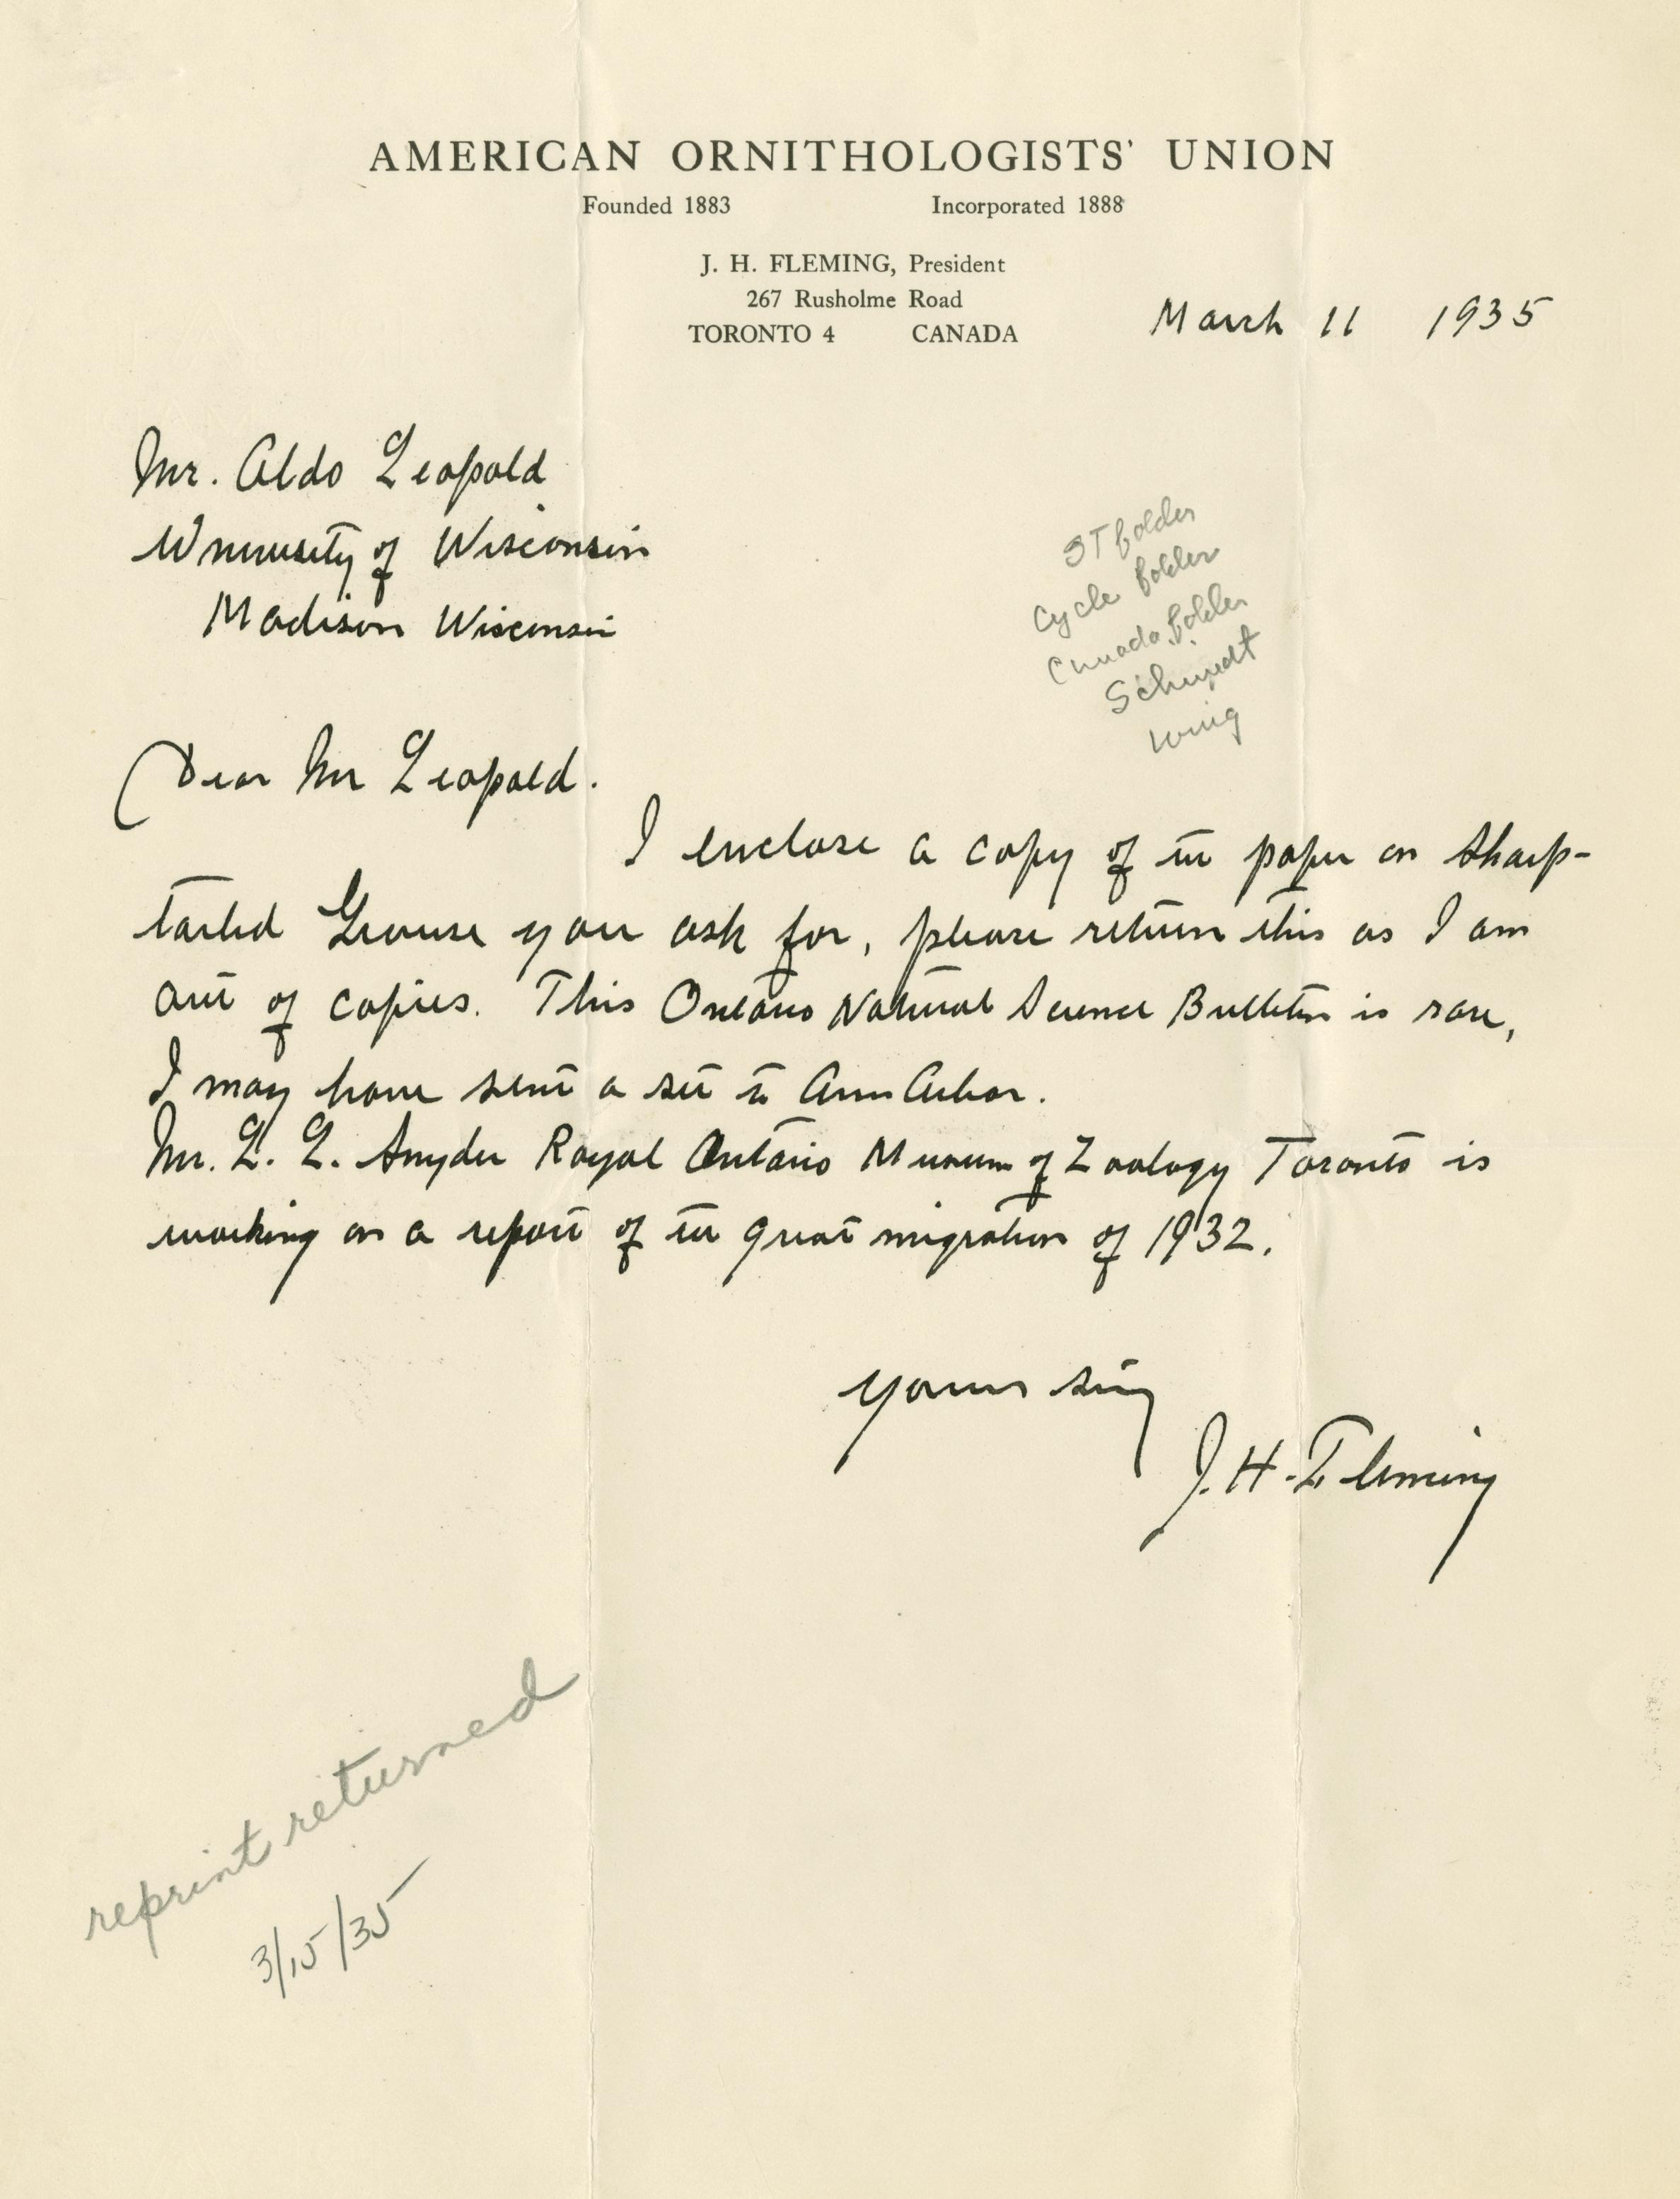 AMERICAN ORNITHOLOGISTS' UNION
Founded 1883 Incorporated 1888
J. H. FLEMING, President
267 Rusholme Road
TORONTO 4 CANADA
March 11 1935
Mr. Aldo Leopold
University of Wisconsin
Madison Wisconsin
ST folder
Cycle folder
Canada folder
Schmidt
Wing
Dear Mr Leopold.
I enclose a copy of the paper on Sharp-
tailed Grouse you ask for, please return this as I am
out of copies. This Ontario Natural Science Bulletin is rare,
I may have sent a set to Ann Arbor.
Mr. L. L. Snyder Royal Ontario Museum of Zoology Toronto is
working on a report of the great migration of 1932.
Yours
J. H. Fleming
reprint returned
3/15/35